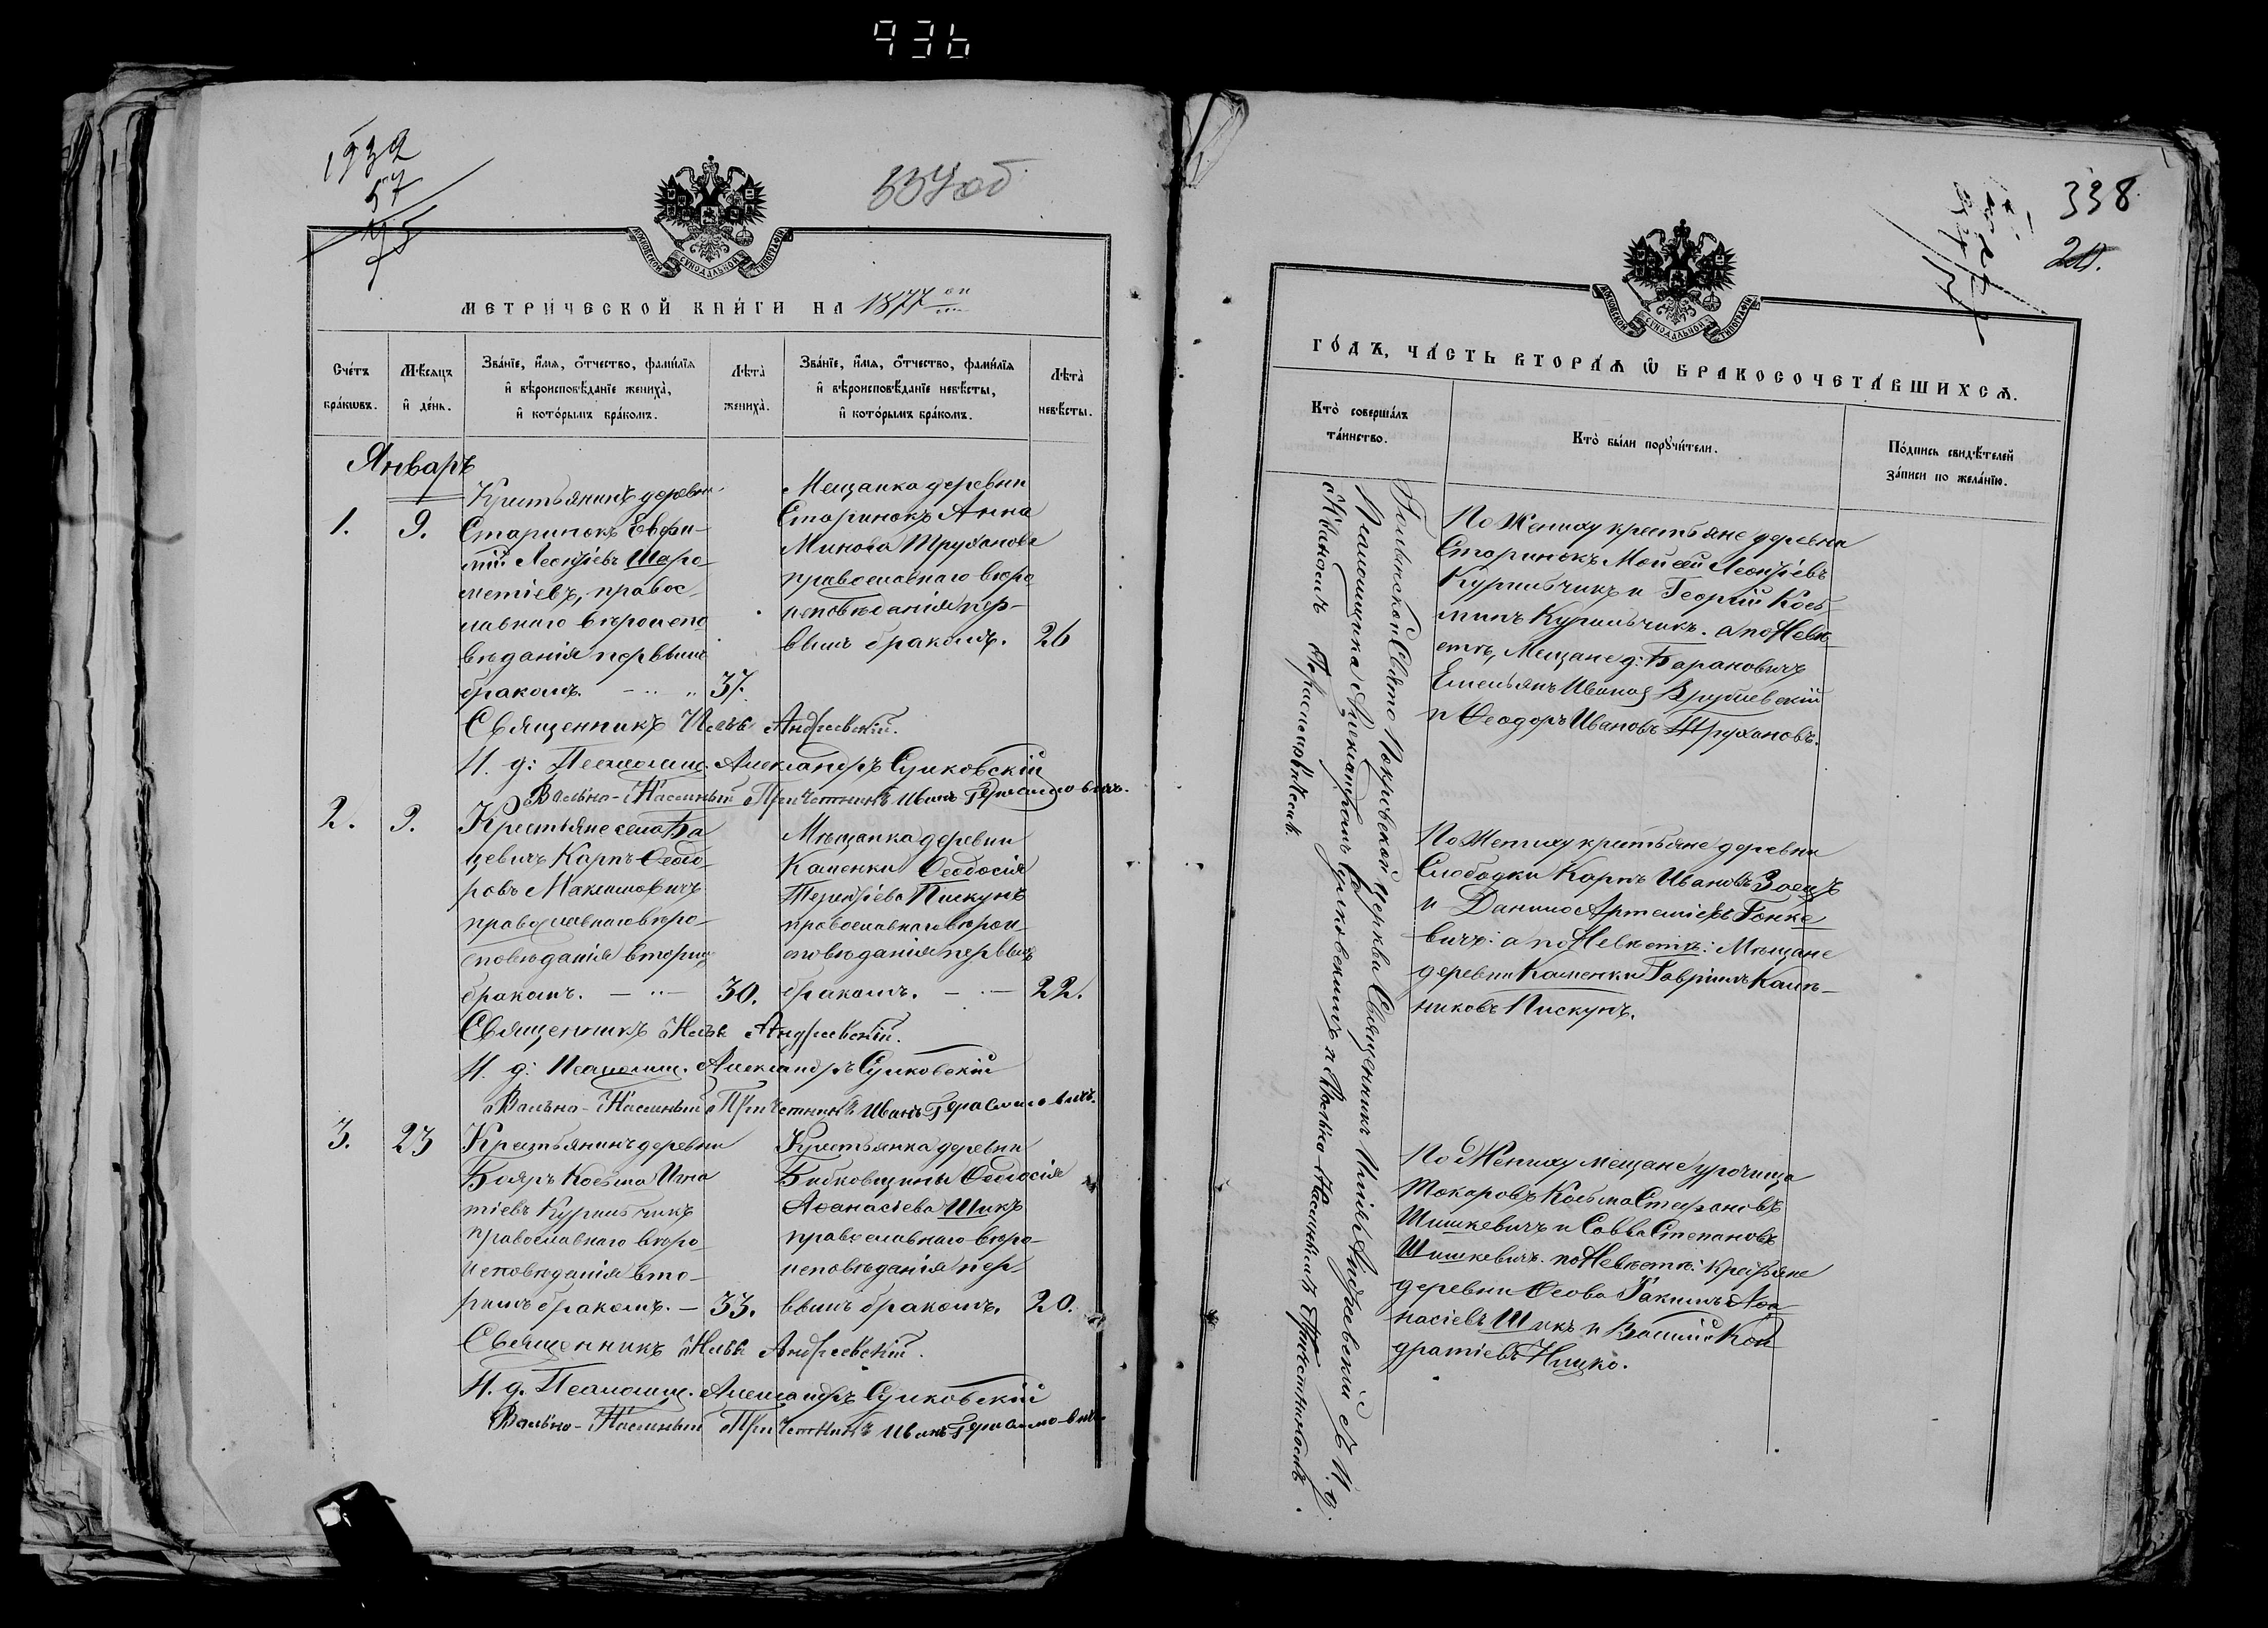 936
1932
57
75
337об
МОСКОВСКОЙ СѴНОДАЛЬНОЙ ТИПОГРАФІИ
МЕТРИЧЕСКОЙ КНИГИ НА 1877 ой
Счетъ браковъ.
Мѣсяцъ и день.
Званіе, имя, отчество, фамилія и вѣроисповѣданіе жениха, и которымъ бракомъ.
Лѣта жениха.
Званіе, имя, отчество, фамилія и вѣроисповѣданіе невѣсты, и которымъ бракомъ.
Лѣта невѣсты.
Январь
1.
9.
Крестьянинъ деревни
Старинокъ Евфи-
мій Леонтіевъ Шаро
метіевъ, правос-
лавнаго вѣроиспо
вѣданія первымъ
бракомъ.
37.
Мещанка деревни
Старинокъ Анна
Минова Труханова
православнаго вѣро
исповѣданія пер-
вымъ бракомъ.
26
Священникъ Илья Андреевскій.
И. д: Псаломщ. Александръ Сулковскій
Вольно-Наемный Причетникъ Иванъ Герасимовичъ.
2.
9.
Крестьяне села Ба
цевичъ Карпъ Ѳеодо
ровъ Максимовичъ
православнаго вѣро-
исповѣданія вторымъ
бракомъ.
30.
Мѣщанка деревни
Каменки Ѳеодосія
Терентіева Пискунъ
православнаго вѣрои
сповѣданія первымъ
бракомъ.
22.
Священникъ Илья Андреевскій.
И. д: Псаломщ. Александръ Сулковскій
Вольно-Наемный Причетникъ Иванъ Герасимовичъ.
3.
23
Крестьянинъ деревни
Бояръ Косьма Игна
тіевъ Курильчикъ
православнаго вѣро-
исповѣданія вто-
рымъ бракомъ.
33.
Крестьянка деревни
Бибковщины Ѳеодосія
Аѳанасіева Шикъ
православнаго вѣро-
исповѣданія пер-
вымъ бракомъ.
20.
Священникъ Илья Андреевскій.
И. д. Псаломщ. Александръ Сулковскій
Вольно-Наемный Причетникъ Иванъ Герасимовичъ
338
20.
МОСКОВСКОЙ СѴНОДАЛЬНОЙ ТИПОГРАФІИ
ГОДЪ, ЧАСТЬ ВТОРАЯ Ѿ БРАКОСОЧЕТАВШИХСЯ.
Кто совершалъ таинство.
Кто были поручители.
Подпись свидѣтелей записи по желанію.
Свято Покровской церкви Священникъ Илія Андреевскій съ И. д.
Псаломщика Александромъ Сулковскимъ и Вольно Наемнымъ Причетникомъ
Иваномъ Герасимовичемъ.
По Жениху крестьяне деревни
Старинокъ Моисей Леонтіевъ
Курильчикъ и Георгій Кось
минъ Курильчикъ. а по Невѣ
стѣ, Мещане д: Барановичъ
Емельянъ Ивановъ Врублевскій
и Ѳеодоръ Ивановъ Трухановъ.
По Жениху крестьяне деревни
Слободки Карпъ Ивановъ Заецъ
и Данило Артеміевъ Гонке
вичъ: а по Невѣстѣ: Мѣщане
деревни Каменки Гавріилъ
никовъ Пискунъ.
По Жениху мещане урочища
Токаровъ Косьма Стефановъ
Шишкевичъ и Савва Степановъ
Шишкевичъ. по Невѣстѣ: крестьяне
деревни Осова Іакимъ Аѳа
насіевъ Шикъ и Василій Кон
дратіевъ Ницко.